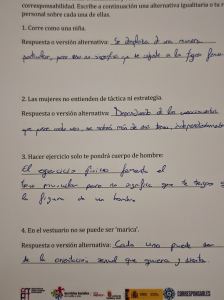 corresponsabilidad. Escribe a continuación una alternativa igualitaria o tu
personal sobre cada una de ellas.
1. Corre como una niña.
Respuesta o versión alternativa: Se desplaza de una manera
particular, pero eso no significa que la figura
2. Las mujeres no entienden de táctica ni estrategia.
Respuesta o versión alternativa: Dependiendo de los conocimientos
que cada uno, se sabrá más de un tema, independientemente
3. Hacer ejercicio solo te pondrá cuerpo de hombre:
El ejercicio físico fomenta el
tono muscular pero no significa que te
la figura de un hombre
4. En el vestuario no se puede ser 'marica'.
Respuesta o versión alternativa: Cada uno puede ser
de la orientación sexual que quiera y sienta.
CORRESPONSABLES